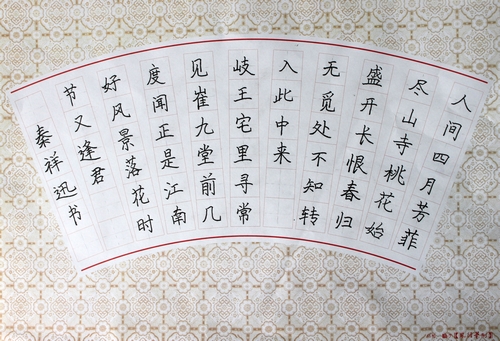 人间四月芳菲
尽山寺桃花始
盛开长恨春归
无觅处不知转
入此中来
岐王宅里寻常
见崔九堂前几
度闻正是江南
好风景落花时
节又逢君
秦祥迅书